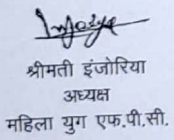 श्रीमती इंजोरिया
अध्यक्ष
महिला युग एफ.पी.सी.